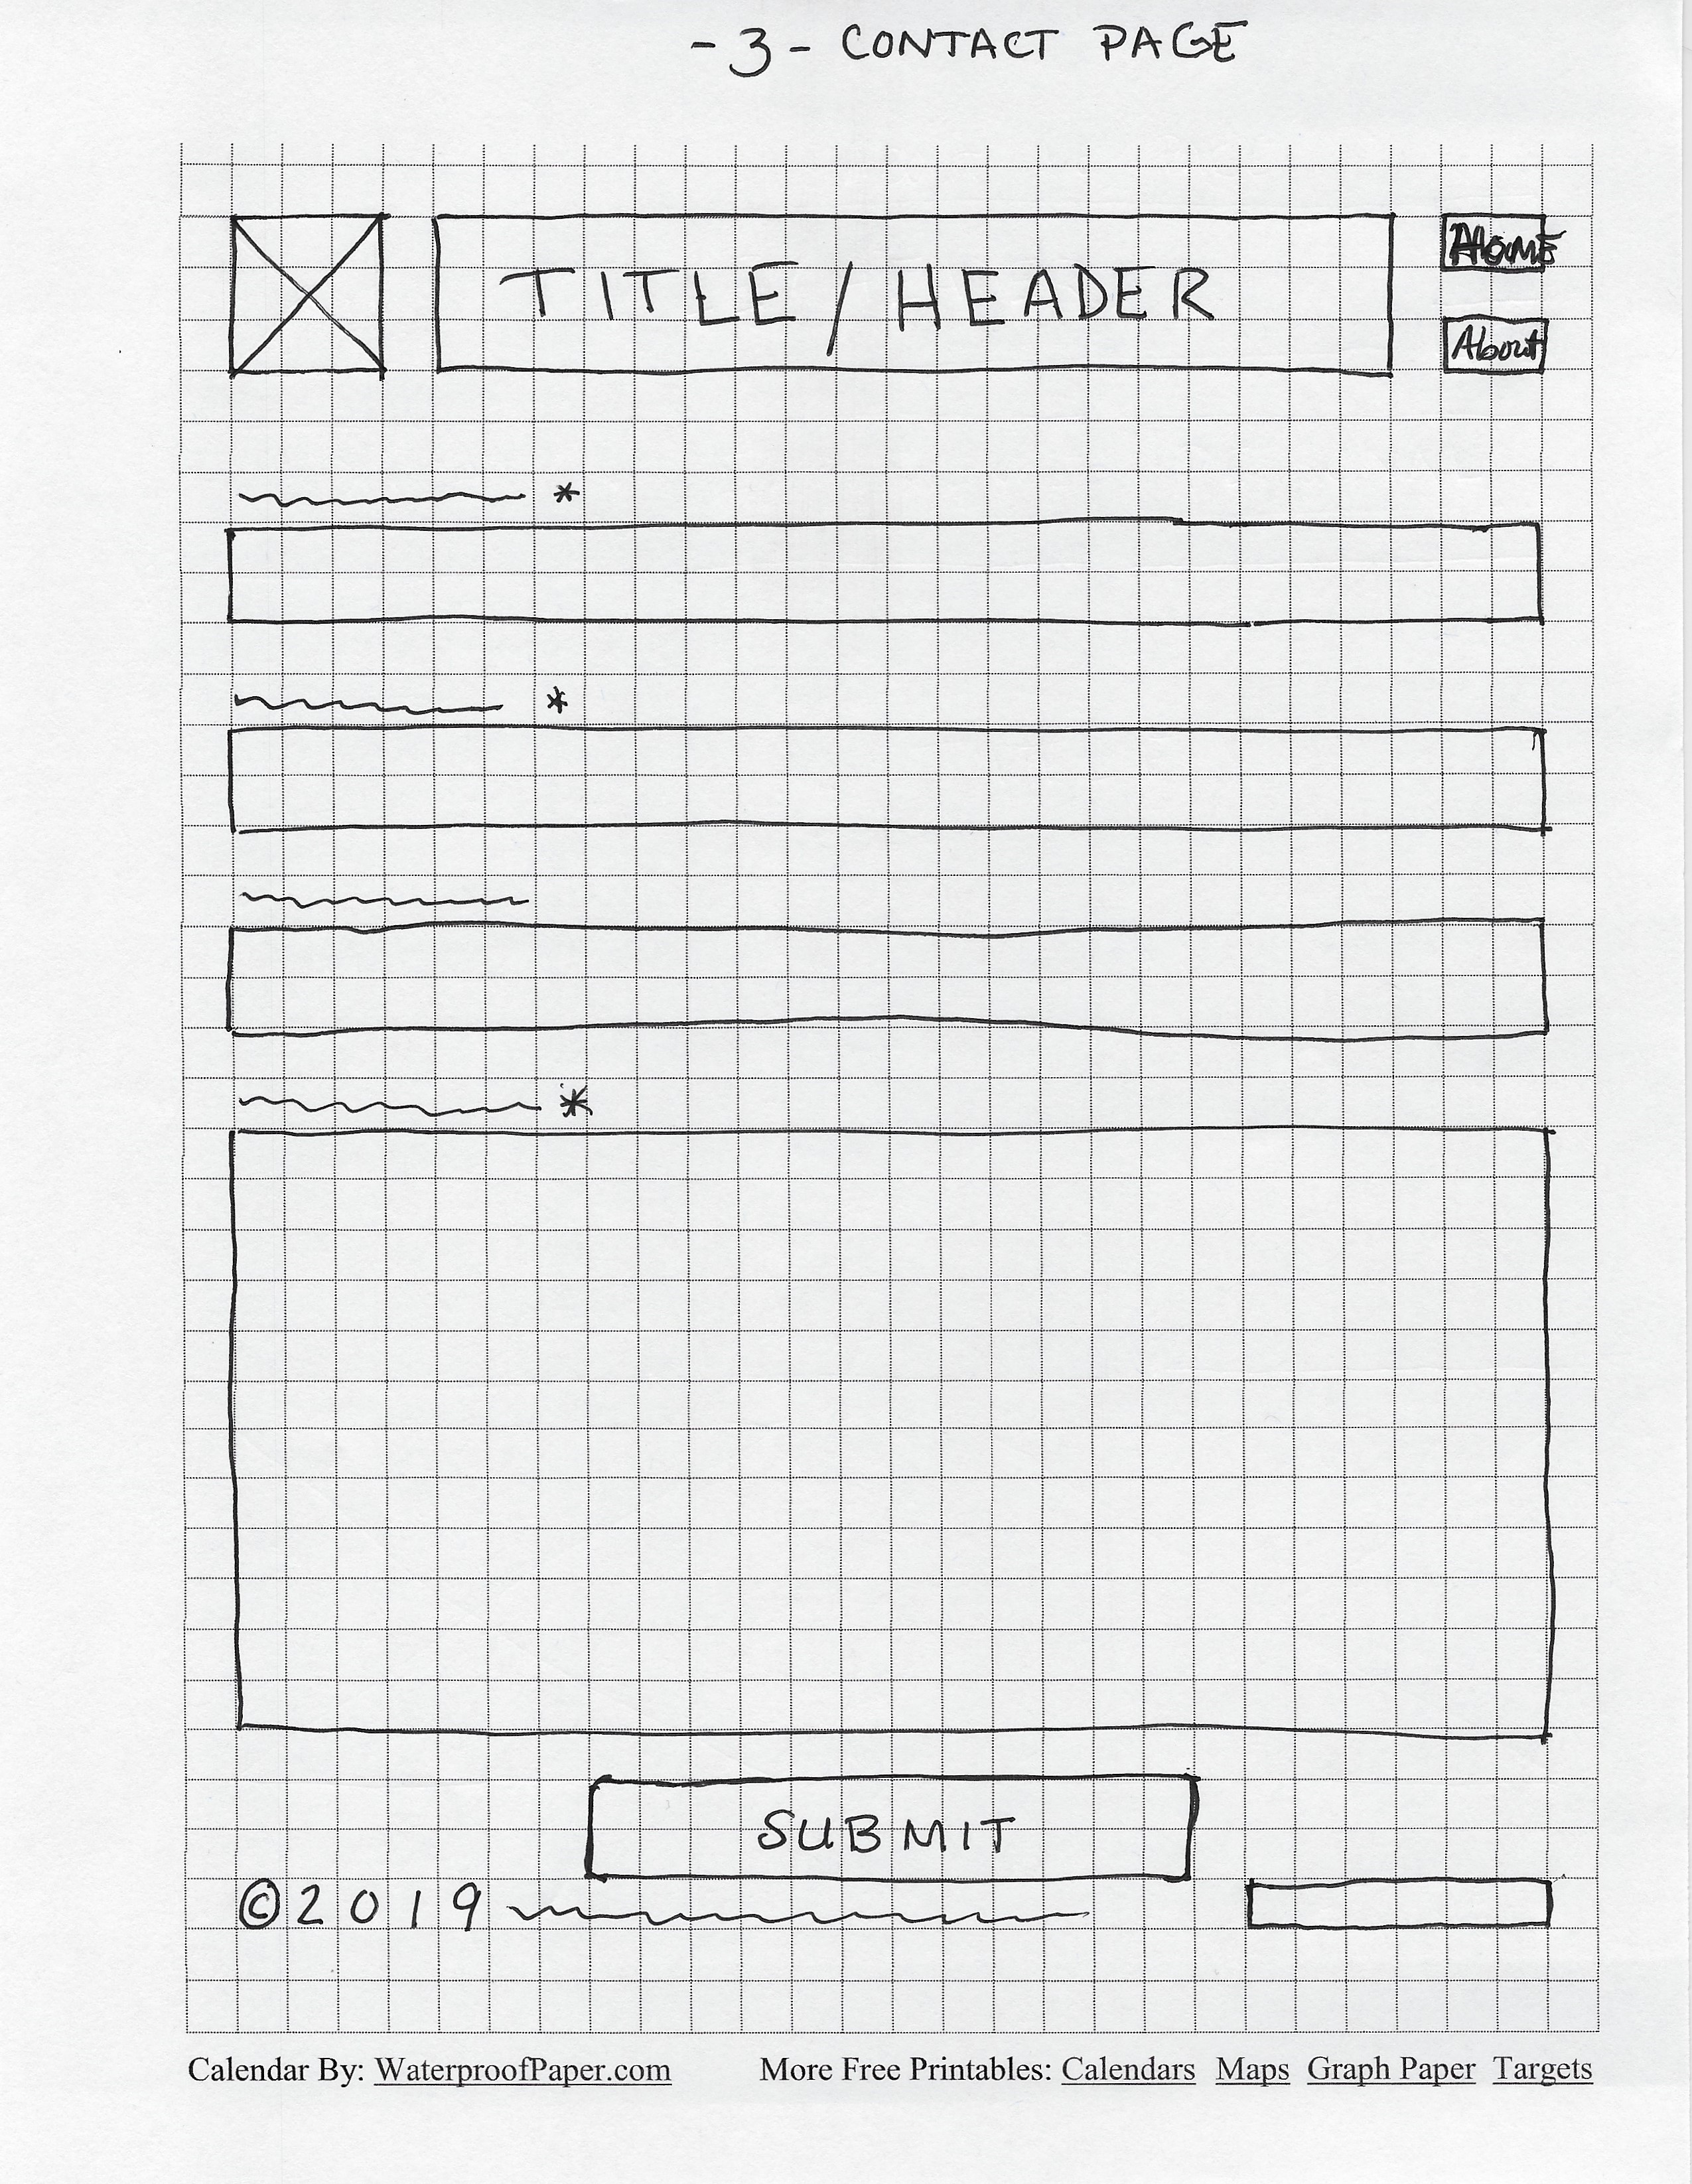 - 3 - CONTACT PAGE
TITLE / HEADER
Home
About
*
*
*
SUBMIT
© 2019
Calendar By: WaterproofPaper.com More Free Printables: Calendars Maps Graph Paper Targets